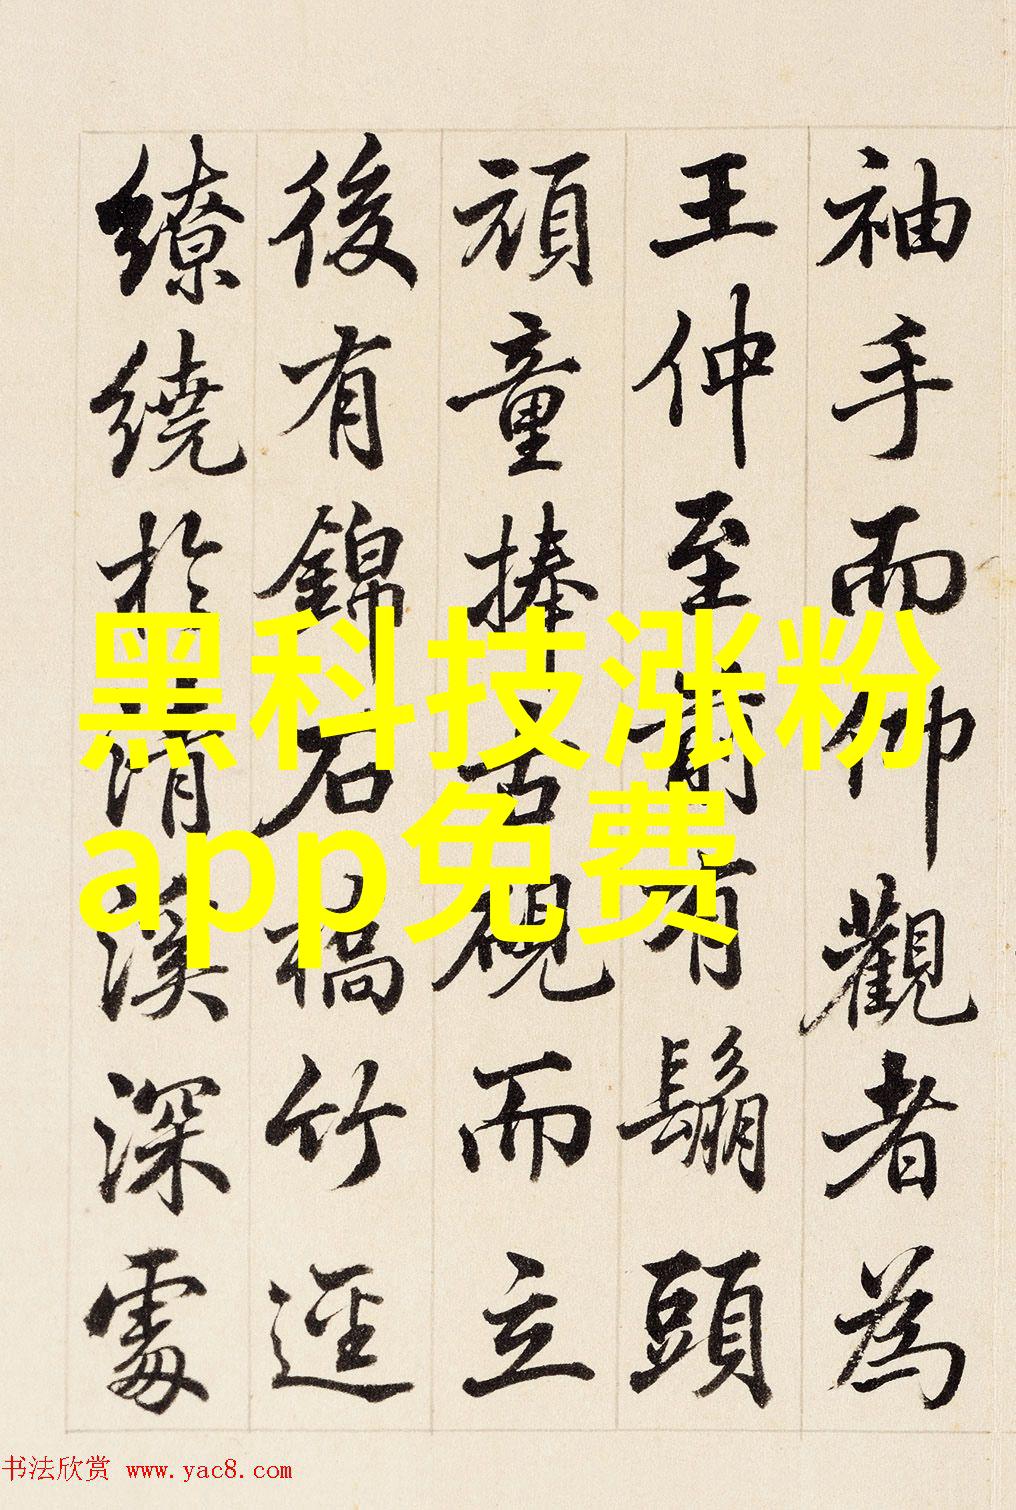 袖手而仰觀者為
王仲至前有鬅頭
頑童捧古硯而立
後有錦石橋竹逕
繚繞於清溪深處
黑科技涨粉
app免费
书法欣赏 www.yac8.com